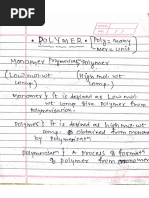 • POLYMER •
Poly = many
mer = Unit
Monomer Polymerisation Polymer
(Low mol. wt (High mol. wt
Comp.) Comp.)
Monomer { It is defined as Low mol.
wt Comp. Polymer from
Polymerisation.
Polymer { It is defined as high mol. wt
Comp. obtained from monome
by Polymeris
Polymerisation } A Process of format
of Polymer from monomer